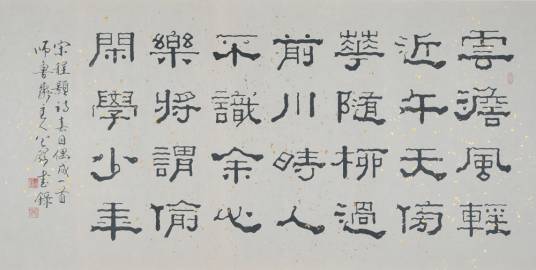 雲澹風輕
近午天傍
華隨柳過
前川時人
不識余心
樂將謂偷
閑學少年
宋程顥詩春日偶成一首
師魯齋主人書錄